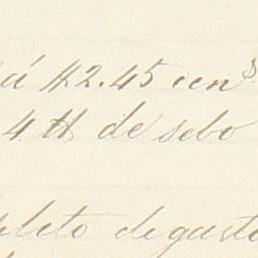 á #2.45 cen$
4 ℔ de sebo
pleto de gasto